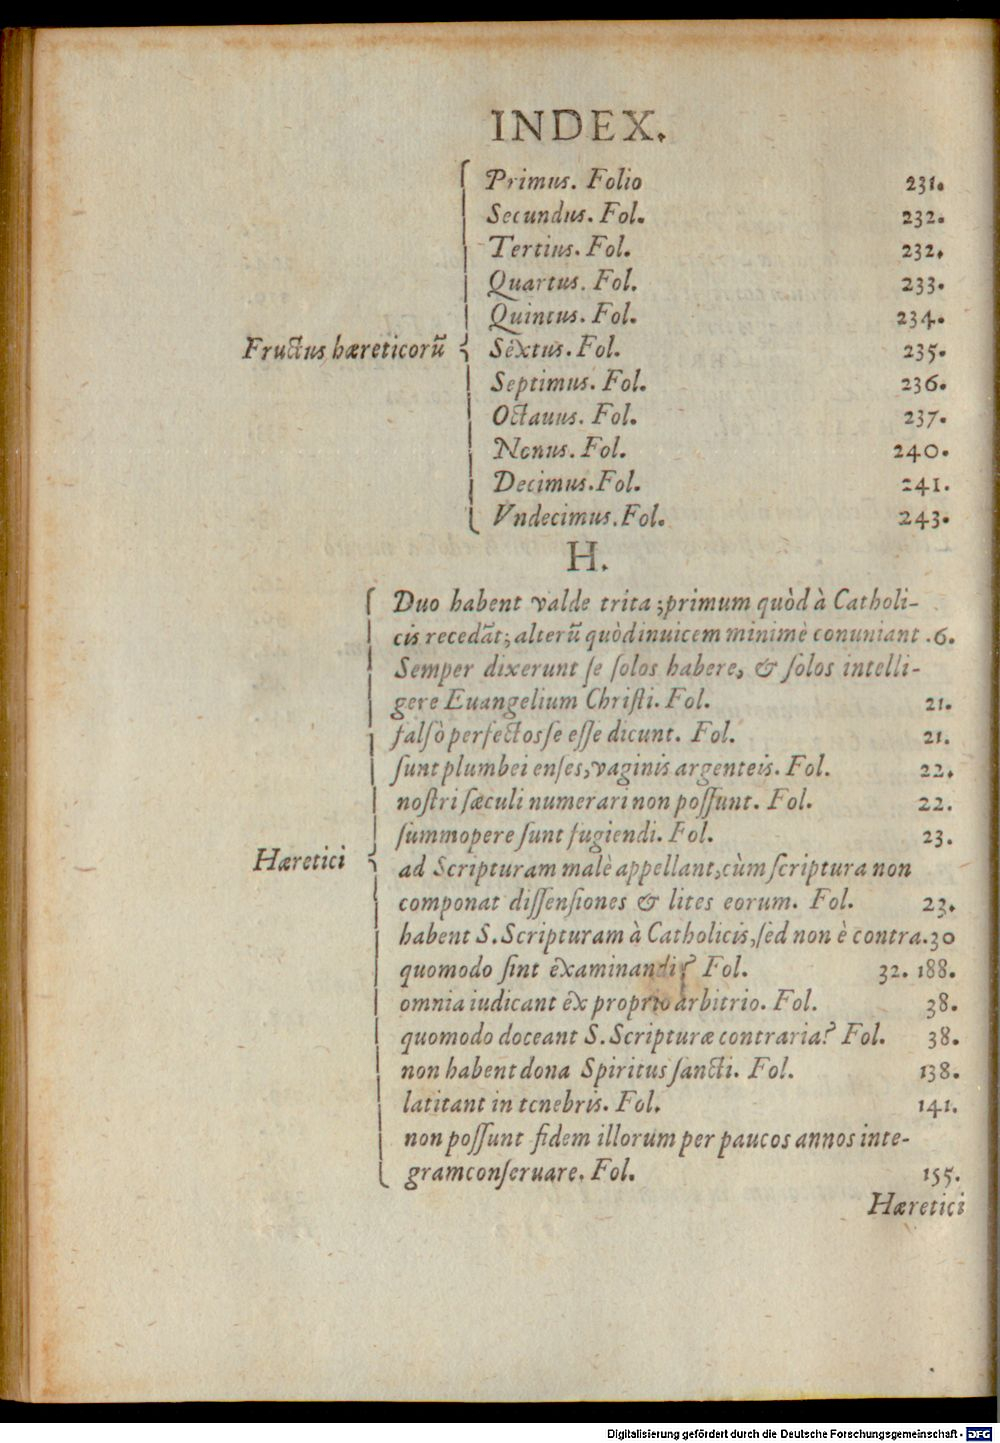 INDEX.
Primus. Folio 231.
Secundus. Fol. 232.
Tertius. Fol. 232.
Quartus. Fol. 233.
Quintus. Fol. 234.
Fructus hæreticorũ Sextus. Fol. 235.
Septimus. Fol. 236.
Octauus. Fol. 237.
Nonus. Fol. 240.
Decimus. Fol. 241.
Vndecimus. Fol. 243.
H.
Duo habent valde trita; primum quòd à Catholi-
cis recedãt; alterũ quòd inuicem minimè conuniant .6.
Semper dixerunt ſe ſolos habere, & ſolos intelli-
gere Euangelium Chriſti. Fol. 21.
falſò perfectos ſe eſſe dicunt. Fol. 21.
ſunt plumbei enſes, vaginis argenteis. Fol. 22.
noſtri ſæculi numerari non poſſunt. Fol. 22.
ſummopere ſunt fugiendi. Fol. 23.
Hæretici
ad Scripturam malè appellant, cùm ſcriptura non
componat diſſenſiones & lites eorum. Fol. 23.
habent S. Scripturam à Catholicis, ſed non è contra. 30
quomodo ſint examinandi? Fol. 32. 188.
omnia iudicant ex proprio arbitrio. Fol. 38.
quomodo doceant S. Scripturæ contraria? Fol. 38.
non habent dona Spiritus ſancti. Fol. 138.
latitant in tenebris. Fol. 141.
non poſſunt fidem illorum per paucos annos inte-
gram conſeruare. Fol. 155.
Hæretici
Digitalisierung gefördert durch die Deutsche Forschungsgemeinschaft - DFG